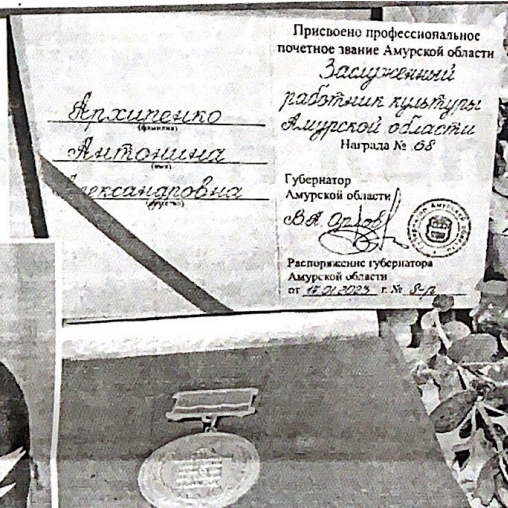 Архипенко
(фамилия)
Антонина
(имя)
Александровна
Присвоено профессиональное
почетное звание Амурской области
Заслуженный
работник культуры
Амурской области
Награда № 68
Губернатор
Амурской области
В.А. Орлов
Распоряжение губернатора
Амурской области
от 17.01.2023 г. № 8-р